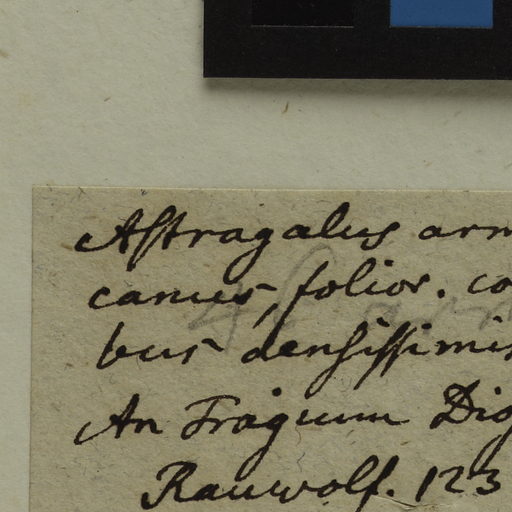 Astragalus arm
canus, folior. co
bus densissimis
An Tragum Dig
Rauwolf. 123